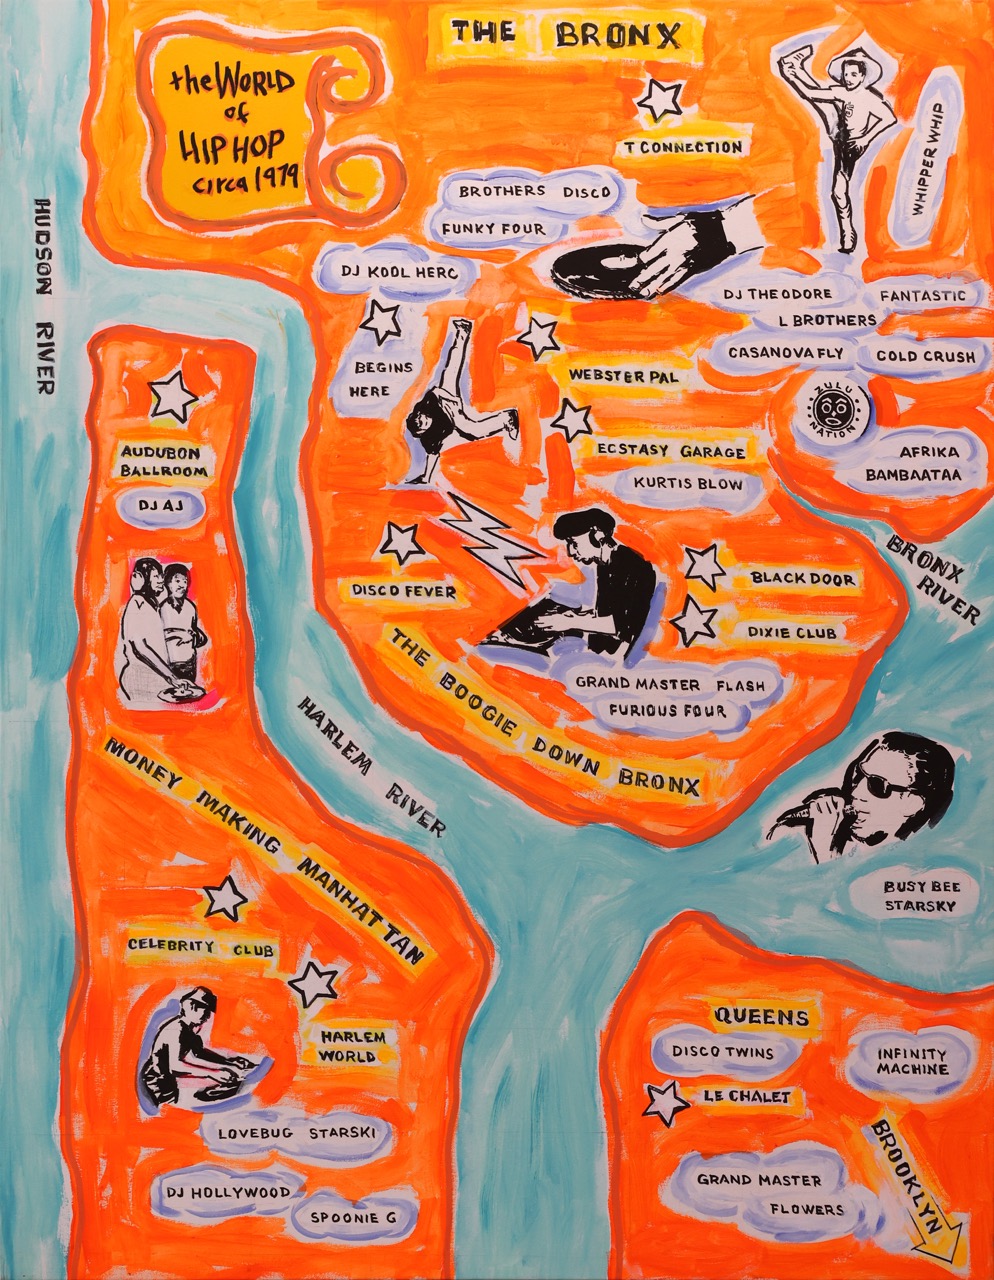 THE BRONX
the WORLD
of
HIP HOP
circa 1979
T CONNECTION
WHIPPER WHIP
BROTHERS DISCO
FUNKY FOUR
HUDSON RIVER
DJ KOOL HERC
BEGINS
HERE
DJ THEODORE
FANTASTIC
L BROTHERS
CASANOVA FLY
COLD CRUSH
WEBSTER PAL
ZULU
NATION
ECSTASY GARAGE
KURTIS BLOW
AFRIKA
BAMBAATAA
AUDUBON
BALLROOM
DJ AJ
BRONX
RIVER
DISCO FEVER
BLACK DOOR
DIXIE CLUB
GRAND MASTER FLASH
FURIOUS FOUR
THE BOOGIE DOWN BRONX
HARLEM RIVER
MONEY MAKING MANHATTAN
BUSY BEE
STARSKY
CELEBRITY CLUB
HARLEM
WORLD
LOVEBUG STARSKI
DJ HOLLYWOOD
SPOONIE G
QUEENS
DISCO TWINS
INFINITY
MACHINE
LE CHALET
GRAND MASTER
FLOWERS
BROOKLYN